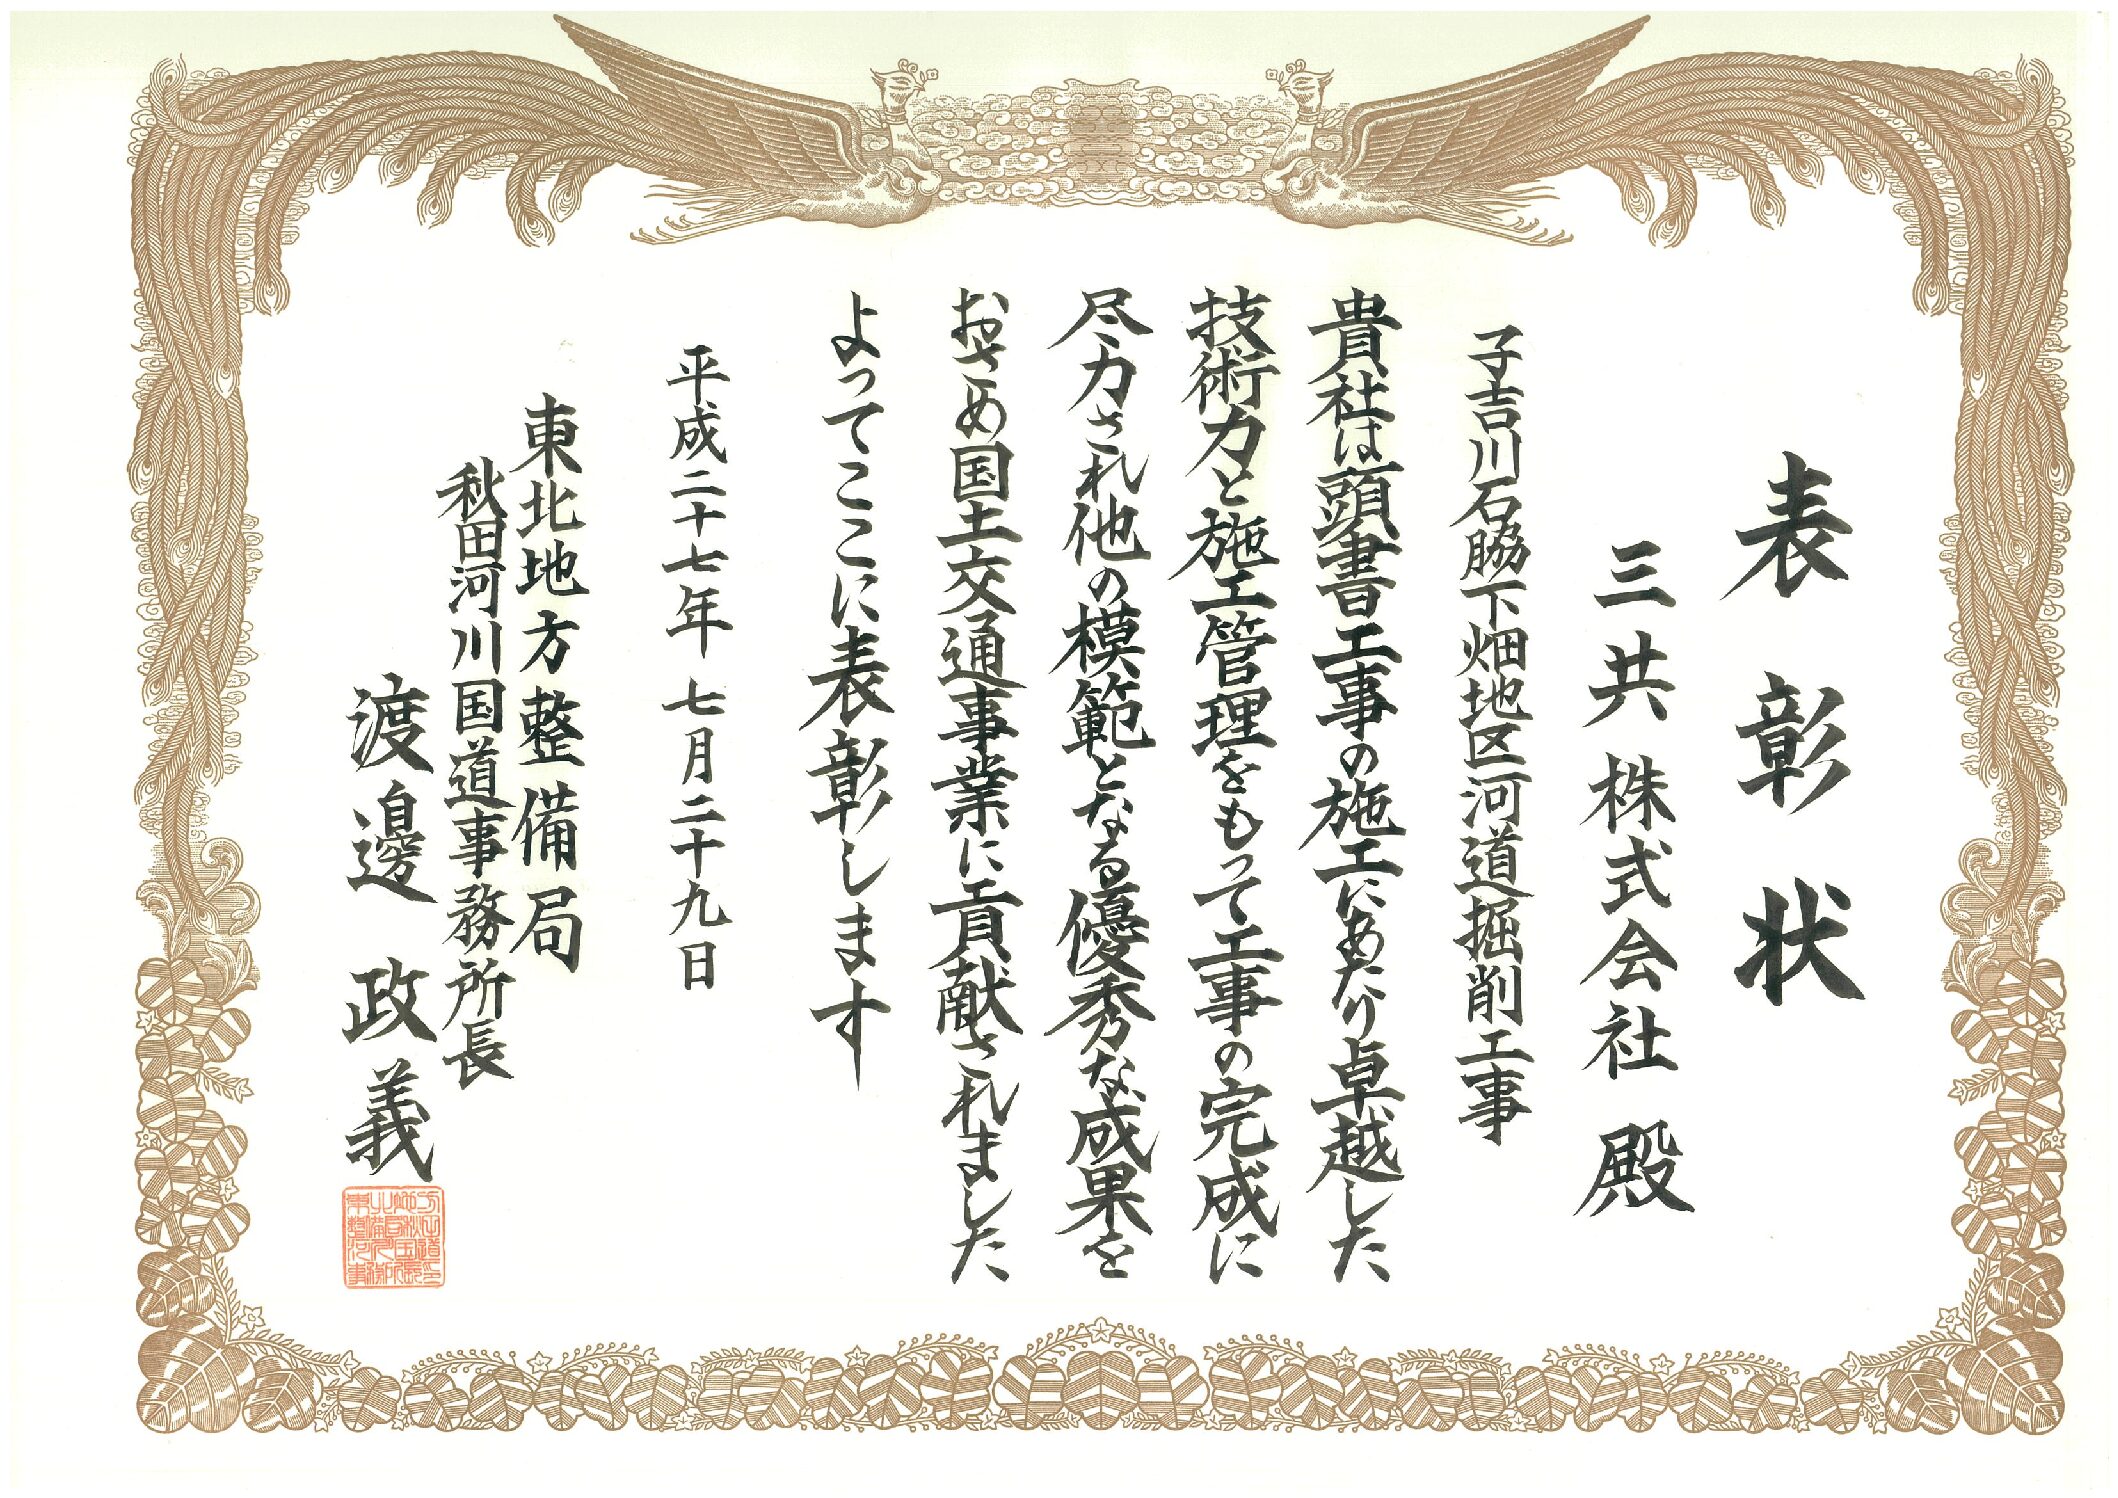 表彰状
三共株式会社 殿
子吉川石脇下畑地区河道掘削工事
貴社は頭書工事の施工にあたり卓越した
技術力と施工管理をもって工事の完成に
尽力され他の模範となる優秀な成果を
おさめ国土交通事業に貢献されました
よってここに表彰します
平成二十七年 七月二十九日
東北地方整備局
秋田河川国道事務所長
渡邊 政義